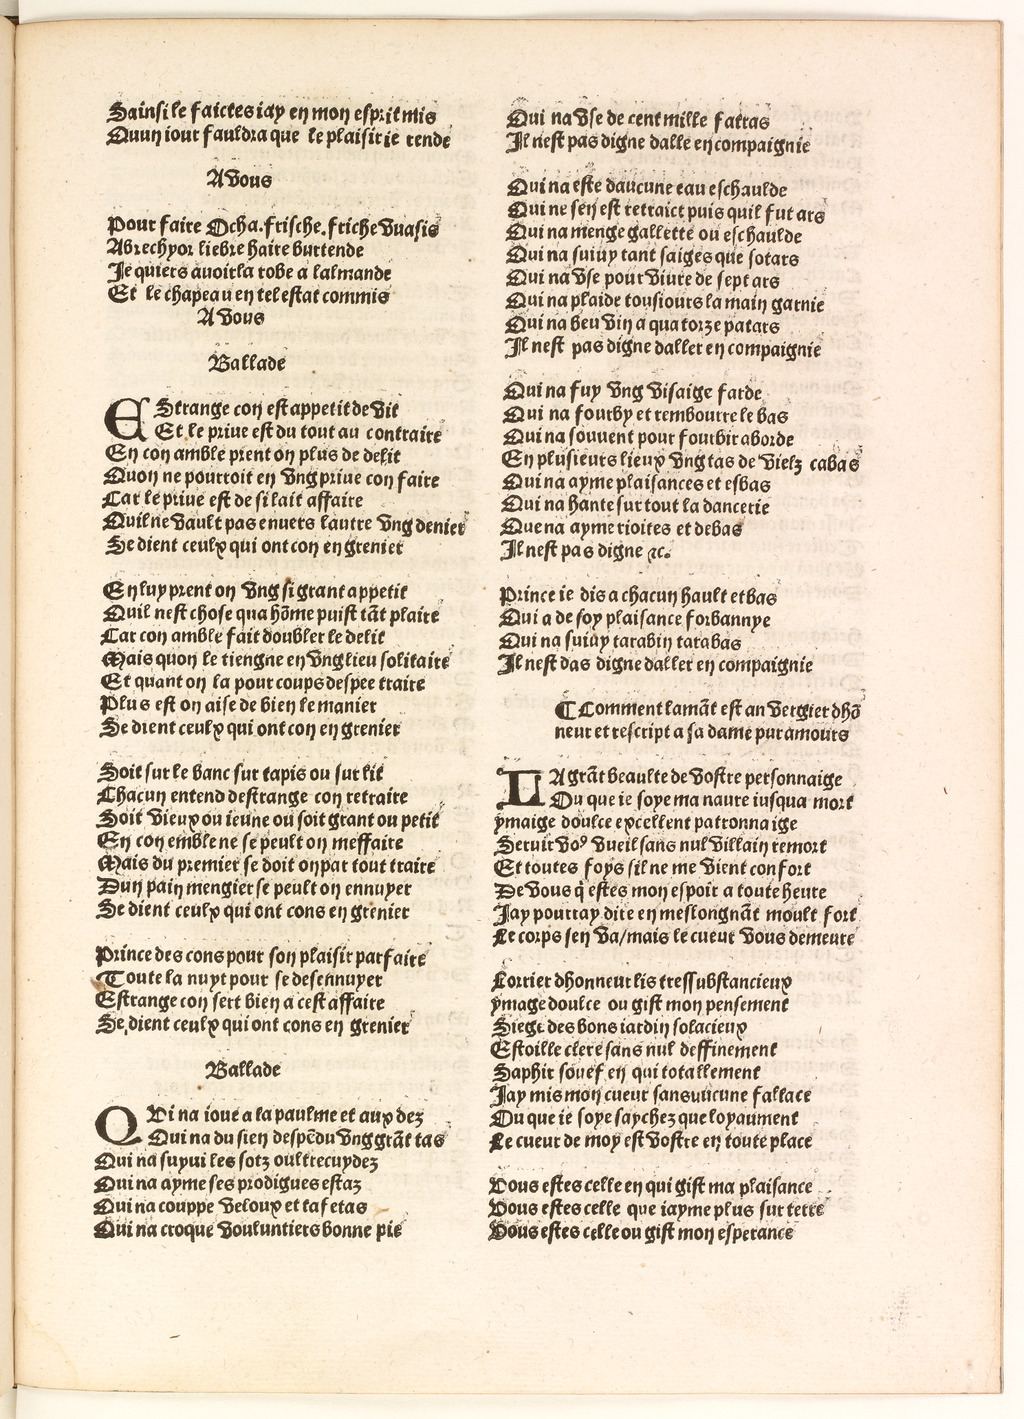 Sainsi le faictes iay en mon esprit mis
Quun iour fauldra que le plaisir ie rende
A vous
Pour faire Ocha.frische.friche vuasis
Abrechyor liebre haire burtende
Je quiers auoir la robe a lalmande
Et le chapeau en tel estat commis
A vous
Ballade
EStrange con est appetit de vit
Et le priue est du tout au contraire
En con amble prent on plus de delit
Quon ne pourroit en vng priue con faire
Car le priue est de si lait affaire
Quil ne vault pas enuers lautre vng denier
Se dient ceulx qui ont con en grenier
En luy prent on vng si grant appetit
Quil nest chose qua hōme puist tāt plaire
Car con amble fait doubler le delit
Mais quon le tiengne en vng lieu solitaire
Et quant on la pour coups despee traire
Plus est on aise de bien le manier
Se dient ceulx qui ont con en grenier
Soit sur le banc sur tapis ou sur lit
Chacun entend destrange con retraire
Soit vieux ou ieune ou soit grant ou petit
En con emble ne se peult on meffaire
Mais du premier se doit on par tout traire
Dun pain mengier se peult on ennuyer
Se dient ceulx qui ont cons en grenier
Prince des cons pour son plaisir parfaire
Toute la nuyt pour se desennuyer
Estrange con sert bien a cest affaire
Se dient ceulx qui ont cons en grenier
Ballade
QVi na ioue a la paulme et aux dez
Qui na du sien despēdu vng grāt tas
Qui na suyui les sotz oultrecuydez
Qui na ayme ses prodigues estaz
Qui na couppe veloux et tafetas
Qui na croque vouluntiers bonne pie
Qui na vse de cent mille fatras
Il nest pas digne dalle en compaignie
Qui na este daucune eau eschaulde
Qui ne sen est retraict puis quil fut ars
Qui na menge gallette ou eschaulde
Qui na suiuy tant saiges que sotars
Qui na vse pour viure de sept ars
Qui na plaide tousiours la main garnie
Qui na beu vin a quatorze patars
Il nest pas digne daller en compaignie
Qui na fuy vng visaige farde
Qui na fourby et rembourre le bas
Qui na souuent pour fourbir aborde
En plusieurs lieux vng tas de vielz cabas
Qui na ayme plaisances et esbas
Qui na hante sur tout la dancerie
Que na ayme rioites et debas
Il nest pas digne ⁊c.
Prince ie dis a chacun hault et bas
Qui a de soy plaisance forbannye
Qui na suiuy tarabin tarabas
Il nest das digne daller en compaignie
¶ Comment lamāt est an vergier dhō
neur et rescript a sa dame par amours
LA grāt beaulte de vostre personnaige
Ou que ie soye ma naure iusqua mort
ymaige doulce excellent patronnaige
Seruir voꝰ vueil sans nul villain remort
Et toutes foys sil ne me vient confort
De vous q̄ estes mon espoir a toute heure
Jay pourray dire en meslongnāt moult fort
Le corps sen va/mais le cueur vous demeure
Lorrier dhonneur lis tressubstancieux
ymage doulce ou gist mon pensement
Siege des bons iardin solacieux
Estoille clere sans nul deffinement
Saphir souef en qui totallement
Jay mis mon cueur sans aucune fallace
Ou que ie soye saychez que loyaument
Le cueur de moy est vostre en toute place
Vous estes celle en qui gist ma plaisance
Vous estes celle que iayme plus sur terre
Vous estes celle ou gist mon esperance